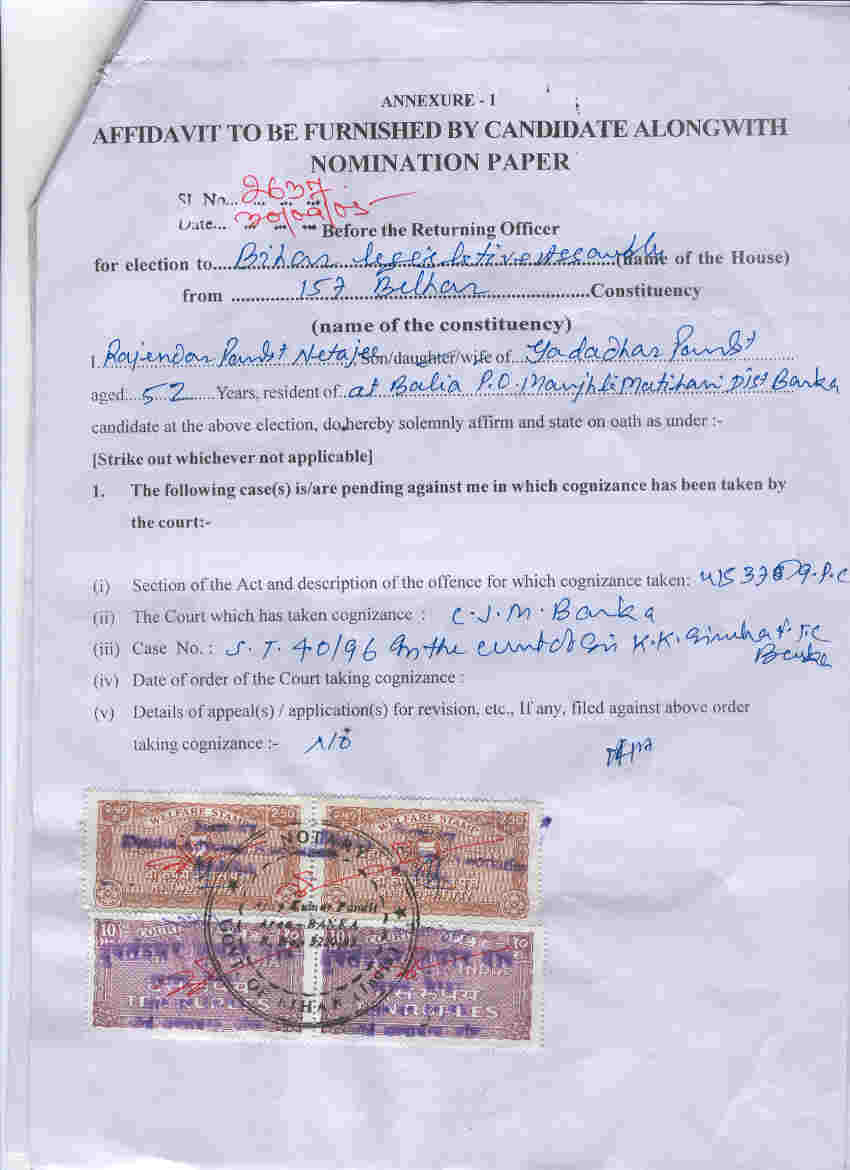 ANNEXURE - 1
AFFIDAVIT TO BE FURNISHED BY CANDIDATE ALONGWITH
NOMINATION PAPER
Sl. No... 2637
Date... 30/09/05
Before the Returning Officer
for election to... Bihar legislative Assembly (name of the House)
from ... 157 Belhar ...Constituency
(name of the constituency)
I Rajendar Pandit Netajee Son/daughter/wife of... Gadadhar Pandit
aged... 52 ...Years, resident of at Balia P.O. Manjhli Matihani Dist Banka
candidate at the above election, do hereby solemnly affirm and state on oath as under :-
[Strike out whichever not applicable]
1. The following case(s) is/are pending against me in which cognizance has been taken by
the court:-
(i) Section of the Act and description of the offence for which cognizance taken: U/S
(ii) The Court which has taken cognizance : C.J.M. Banka
(iii) Case No. : S.T. 40/96 In the court of Sri K.K. Sinha
Banka
(iv) Date of order of the Court taking cognizance :
(v) Details of appeal(s) / application(s) for revision, etc., If any, filed against above order
taking cognizance :- No
WELFARE STAMP 250
WELFARE STAMP
NOTARY
Kumar Pandit
BANKA
GOVT. OF BIHAR
10 COURT
COURT
INDIA
TEN RUPEES
TEN RUPEES